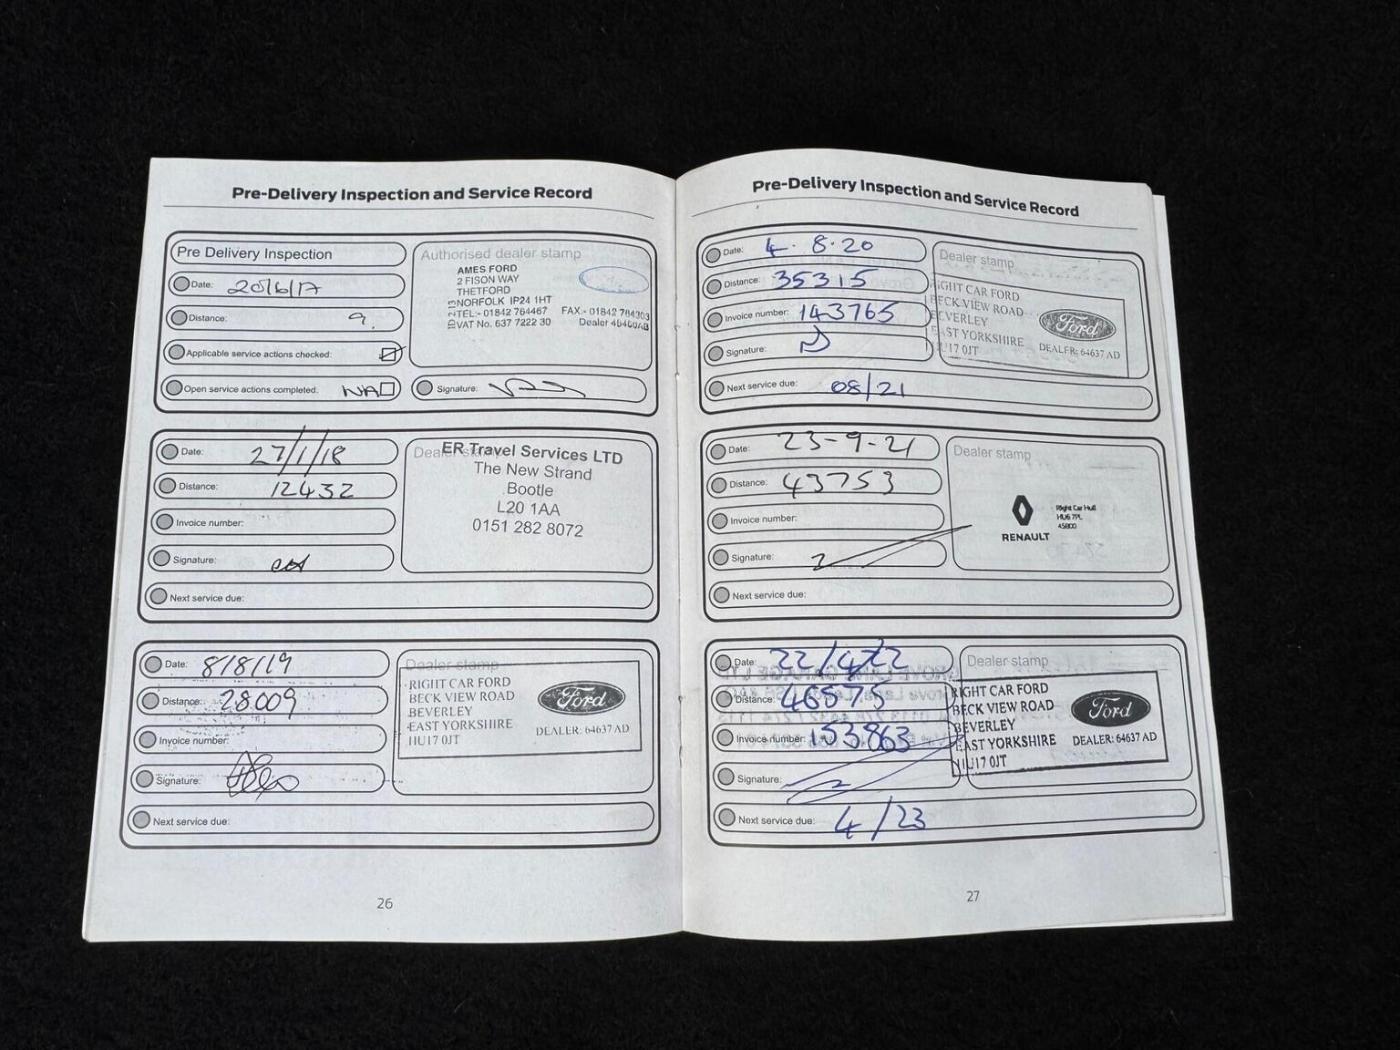 Pre-Delivery Inspection and Service Record
Pre Delivery Inspection
Date: 20/6/17
Distance: 9.
Applicable service actions checked:
Open service actions completed: N/A
Authorised dealer stamp
AMES FORD
2 FISON WAY
THETFORD
NORFOLK IP24 1HT
TEL:- 01842 764467 FAX:- 01842 764303
VAT No. 637 7222 30 Dealer
Signature:
Date: 27/1/18
Distance: 12432
Invoice number:
Signature:
Next service due:
Dealer stamp
ER Travel Services LTD
The New Strand
Bootle
L20 1AA
0151 282 8072
Date: 8/8/19
Distance: 28009
Invoice number:
Signature:
Next service due:
Dealer stamp
RIGHT CAR FORD
BECK VIEW ROAD
BEVERLEY
EAST YORKSHIRE
HU17 0JT
Ford
DEALER: 64637 AD
26
Pre-Delivery Inspection and Service Record
Date: 4.8.20
Distance: 35315
Invoice number: 143765
Signature:
Next service due: 08/21
Dealer stamp
RIGHT CAR FORD
BECK VIEW ROAD
BEVERLEY
EAST YORKSHIRE
HU17 0JT
Ford
DEALER: 64637 AD
Date: 23-9-21
Distance: 43753
Invoice number:
Signature:
Next service due:
Dealer stamp
RENAULT
Right Car Hull
HU6 7PL
45800
Date: 22/4/22
Distance: 46575
Invoice number: 153863
Signature:
Next service due: 4/23
Dealer stamp
RIGHT CAR FORD
BECK VIEW ROAD
BEVERLEY
EAST YORKSHIRE
HU17 0JT
Ford
DEALER: 64637 AD
27